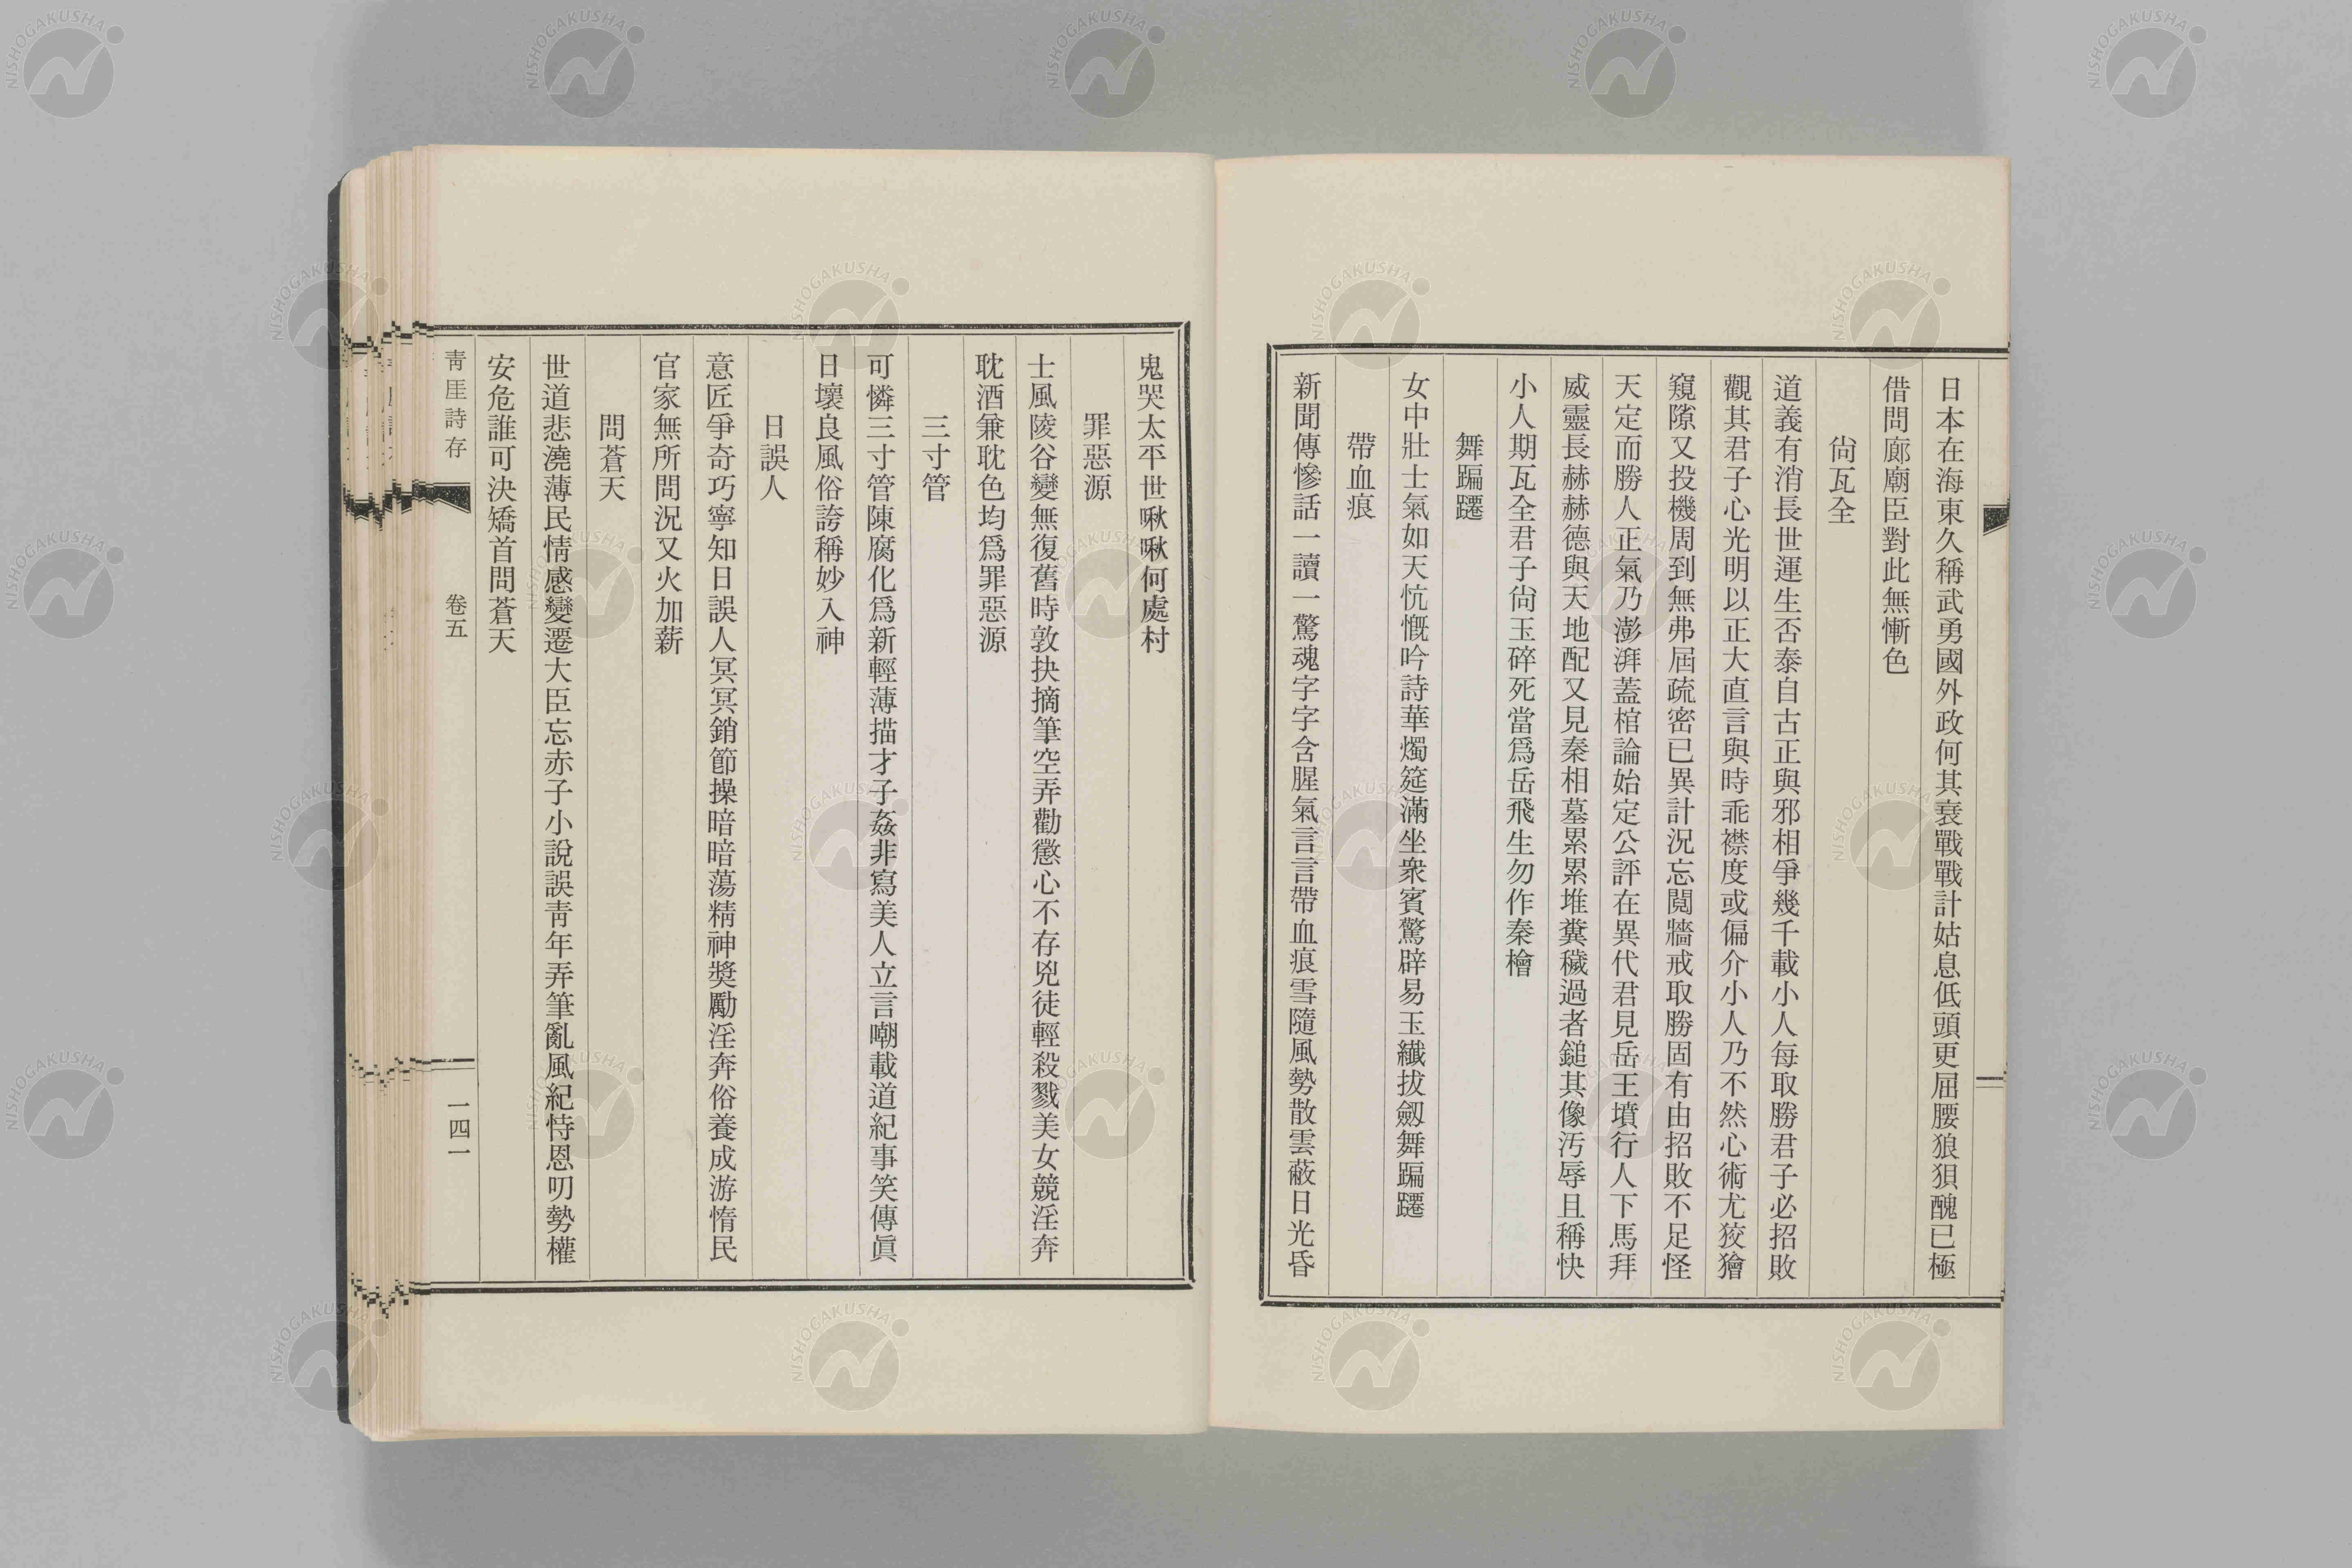 日本在海東久稱武勇國外政何其衰戰戰計姑息低頭更屈腰狼狽醜已極
借問廊廟臣對此無慚色
尙瓦全
道義有消長世運生否泰自古正與邪相爭幾千載小人每取勝君子必招敗
觀其君子心光明以正大直言與時乖襟度或偏介小人乃不然心術尤狡獪
窺隙又投機周到無弗屆疏密已異計況忘鬩牆戒取勝固有由招敗不足怪
天定而勝人正氣乃澎湃蓋棺論始定公評在異代君見岳王墳行人下馬拜
威靈長赫赫德與天地配又見秦相墓累累堆糞穢過者鎚其像汚辱且稱快
小人期瓦全君子尙玉碎死當爲岳飛生勿作秦檜
舞蹁躚
女中壯士氣如天忼慨吟詩華燭筵滿坐衆賓驚辟易玉纖拔劔舞蹁躚
帶血痕
新聞傳慘話一讀一驚魂字字含腥氣言言帶血痕雪隨風勢散雲蔽日光昏
鬼哭太平世啾啾何處村
罪惡源
士風陵谷變無復舊時敦抉摘筆空弄勸懲心不存兇徒輕殺戮美女競淫奔
耽酒兼耽色均爲罪惡源
三寸管
可憐三寸管陳腐化爲新輕薄描才子姦非寫美人立言嘲載道紀事笑傳眞
日壞良風俗誇稱妙入神
日誤人
意匠爭奇巧寧知日誤人冥冥銷節操暗暗蕩精神奬勵淫奔俗養成游惰民
官家無所問況又火加薪
問蒼天
世道悲澆薄民情感變遷大臣忘赤子小說誤靑年弄筆亂風紀恃恩叨勢權
安危誰可決矯首問蒼天
靑厓詩存
卷五
一四一
NISHOGAKUSHA